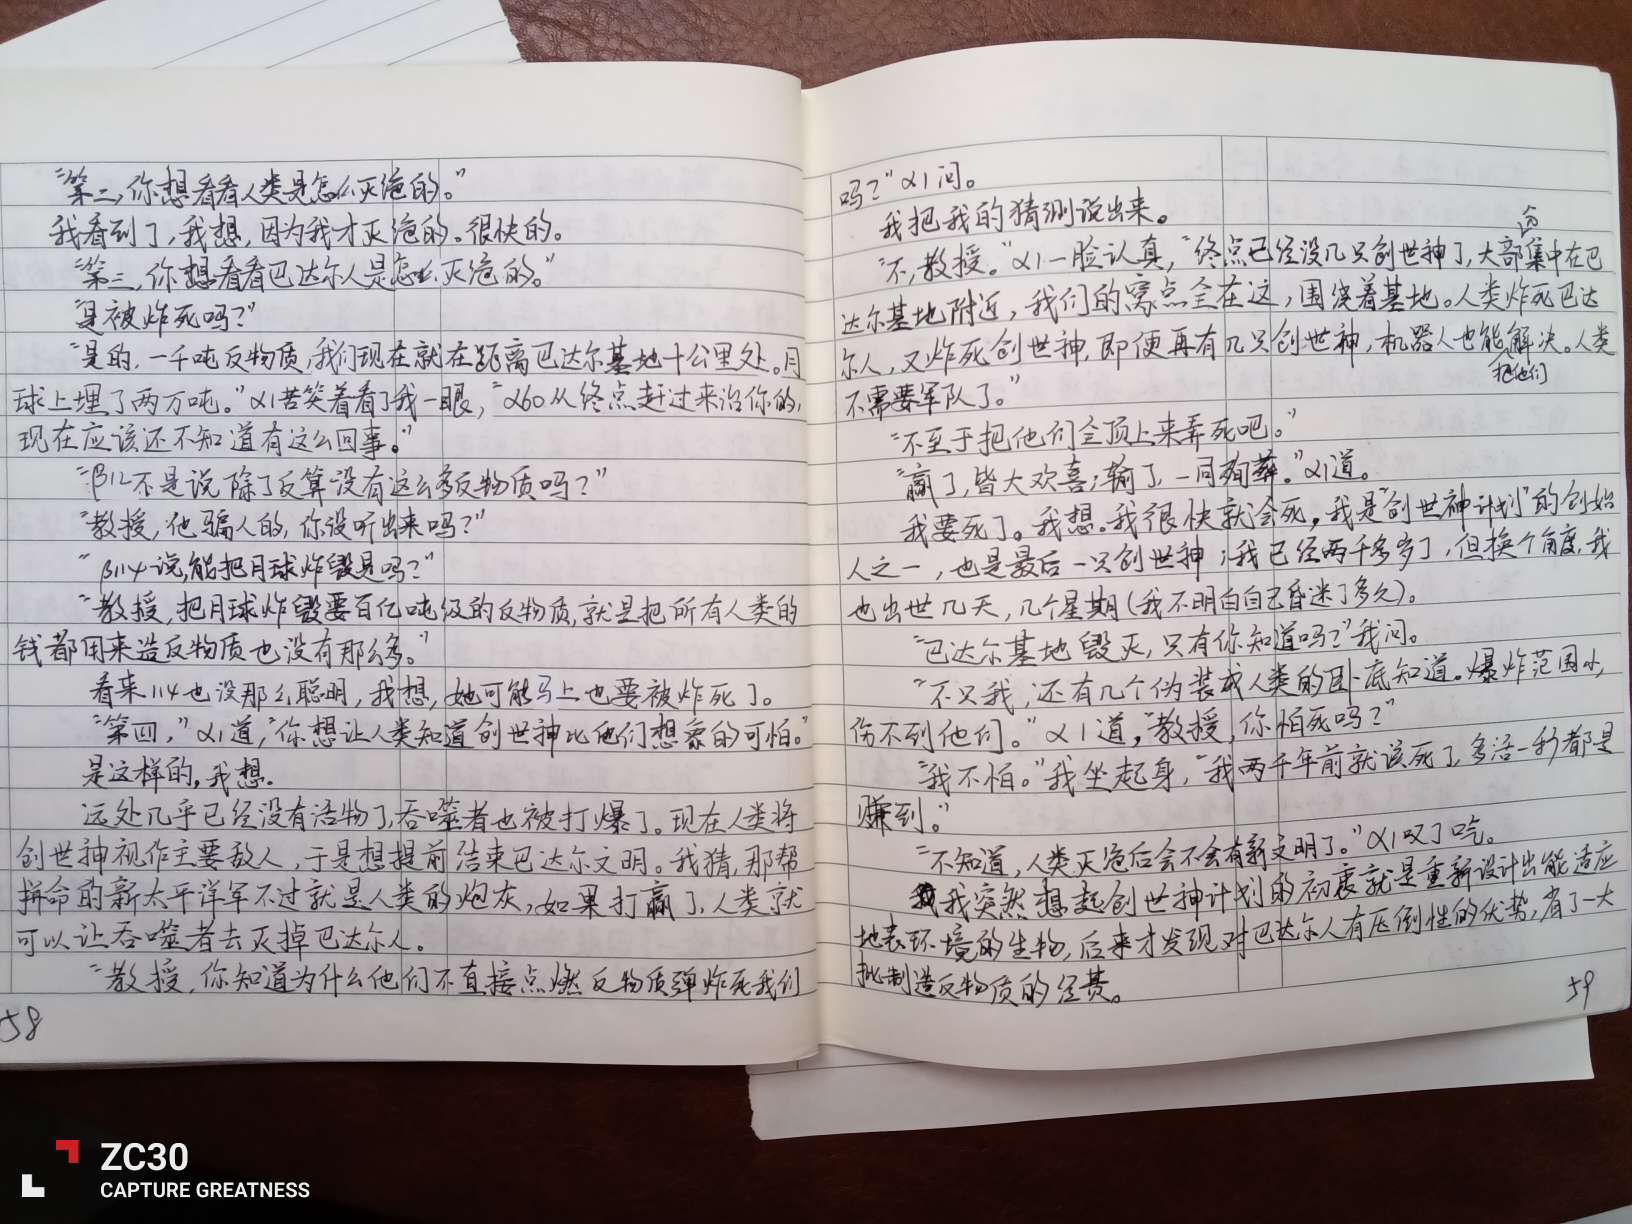 “第二，你想看看人类是怎么灭绝的。”
我看到了，我想，因为我才灭绝的。很快的。
“第三，你想看看巴达尔人是怎么灭绝的。”
“是被炸死吗？”
“是的，一千吨反物质，我们现在就在距离巴达尔基地十公里处。月
球上埋了两万吨。”α1苦笑着看了我一眼，“α60从终点赶过来治你的，
现在应该还不知道有这么回事。”
“β12不是说除了反算没有这么多反物质吗？”
“教授，他骗人的，你没听出来吗？”
“β114说能把月球炸毁是吗？”
“教授，把月球炸毁要百亿吨级的反物质，就是把所有人类的
钱都用来造反物质也没有那么多。”
看来114也没那么聪明，我想，她可能马上也要被炸死了。
“第四，”α1道，“你想让人类知道创世神比他们想象的可怕。”
是这样的，我想.
远处几乎已经没有活物了，吞噬者也被打爆了。现在人类将
创世神视作主要敌人，于是想提前结束巴达尔文明。我猜，那帮
拼命的新太平洋军不过就是人类的炮灰，如果打赢了，人类就
可以让吞噬者去灭掉巴达尔人。
“教授，你知道为什么他们不直接点燃反物质弹炸死我们
58
吗？”α1问。
我把我的猜测说出来。
“不，教授。”α1一脸认真，“终点已经没几只创世神了，大部分集中在巴
达尔基地附近，我们的窝点全在这，围绕着基地。人类炸死巴达
尔人，又炸死创世神，即便再有几只创世神，机器人也能把他们解决。人类
不需要军队了。”
“不至于把他们全顶上来弄死吧。”
“赢了，皆大欢喜；输了，一同殉葬。”α1道。
我要死了。我想.我很快就会死，我是“创世神计划”的创始
人之一，也是最后一只创世神；我已经两千多岁了，但换个角度，我
也出世几天，几个星期（我不明白自己昏迷了多久）。
“巴达尔基地毁灭，只有你知道吗？”我问。
“不只我，还有几个伪装成人类的卧底知道。爆炸范围小，
伤不到他们。”α1道，“教授，你怕死吗？”
“我不怕。”我坐起身，“我两千年前就该死了，多活一秒都是
赚到。”
“不知道，人类灭绝后会不会有新文明了。”α1叹了口气。
我突然想起创世神计划的初衷就是重新设计出能适应
地表环境的生物，后来才发现对巴达尔人有压倒性的优势，省了一大
批制造反物质的经费。
59
ZC30
CAPTURE GREATNESS